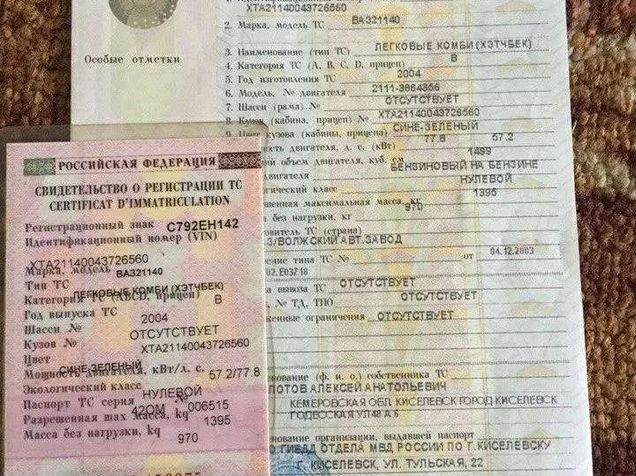 ХТА21140043726560
2. Марка, модель ТС ВАЗ21140
3. Наименование (тип ТС) ЛЕГКОВЫЕ КОМБИ (ХЭТЧБЕК)
4. Категория ТС (А, В, С, D, прицеп) В
5. Год изготовления ТС 2004
6. Модель, № двигателя 2111-3864356
7. Шасси (рама) № ОТСУТСТВУЕТ
8. Кузов (кабина, прицеп) № ХТА21140043726560
9. Цвет кузова (кабины, прицепа) СИНЕ-ЗЕЛЕНЫЙ
двигателя, л. с. (кВт) 77.8 57.2
объем двигателя, куб. см 1499
двигателя БЕНЗИНОВЫЙ НА БЕНЗИНЕ
класс НУЛЕВОЙ
максимальная масса, кг 1395
без нагрузки, кг 970
ТС (страна)
ВОЛЖСКИЙ АВТ.ЗАВОД
типа ТС № 04.12.2003
вывоза ТС ОТСУТСТВУЕТ
№ ТД, ТПО
ограничения ОТСУТСТВУЕТ
(ф. и. о.) собственника ТС
АЛЕКСЕЙ АНАТОЛЬЕВИЧ
КЕМЕРОВСКАЯ ОБЛ КИСЕЛЕВСК ГОРОД КИСЕЛЕВСК
УЛ
организации, выдавшей паспорт
ГИБДД ОТДЕЛА МВД РОССИИ ПО Г.КИСЕЛЕВСКУ
Г. КИСЕЛЕВСК, УЛ. ТУЛЬСКАЯ, 22
Особые отметки
РОССИЙСКАЯ ФЕДЕРАЦИЯ
СВИДЕТЕЛЬСТВО О РЕГИСТРАЦИИ ТС
CERTIFICAT D'IMMATRICULATION
Регистрационный знак С792ЕН142
Идентификационный номер (VIN)
ХТА21140043726560
Марка, модель ВАЗ21140
Тип ТС ЛЕГКОВЫЕ КОМБИ (ХЭТЧБЕК)
Категория ТС (ABCD, прицеп) В
Год выпуска ТС 2004
Шасси № ОТСУТСТВУЕТ
Кузов № ХТА21140043726560
Цвет СИНЕ-ЗЕЛЕНЫЙ
Мощность двигателя, кВт/л. с. 57.2/77.8
Экологический класс НУЛЕВОЙ
Паспорт ТС серия 42ОМ № 006515
Разрешенная max масса, kg 1395
Масса без нагрузки, kg 970